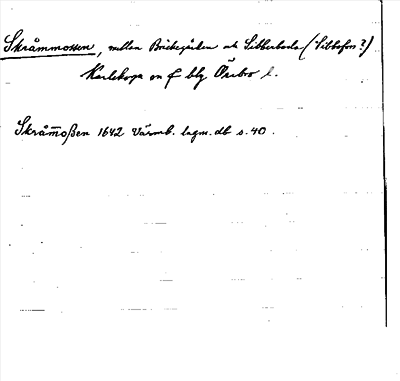 Skråmmossen, mellan Brickegården och Sibberboda (Sibbofors?)
Karlskoga sn f blg Örebro l.
Skråm̄oßen 1642 Värml. lagm. db s. 40.